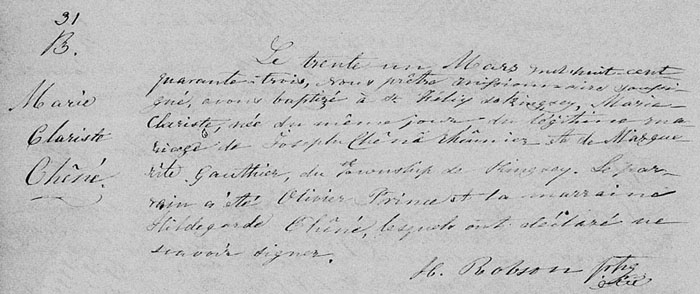 31
B.
Marie
Clariste
Chêné.
Le trente un Mars mil huit-cent
quarante-trois, nous prêtre missionnaire soussi-
gné, avons baptizé à St Félix de Kingsey, Marie
Clariste, née du même jour du légitime ma-
riage de Joseph Chêné et de Margue-
rite Gauthier, du Township de Kingsey. Le par-
rain a été Olivier Prince et la marraine
Hildegarde Chêné, lesquels ont déclaré ne
savoir signer.
H. Robson ptre